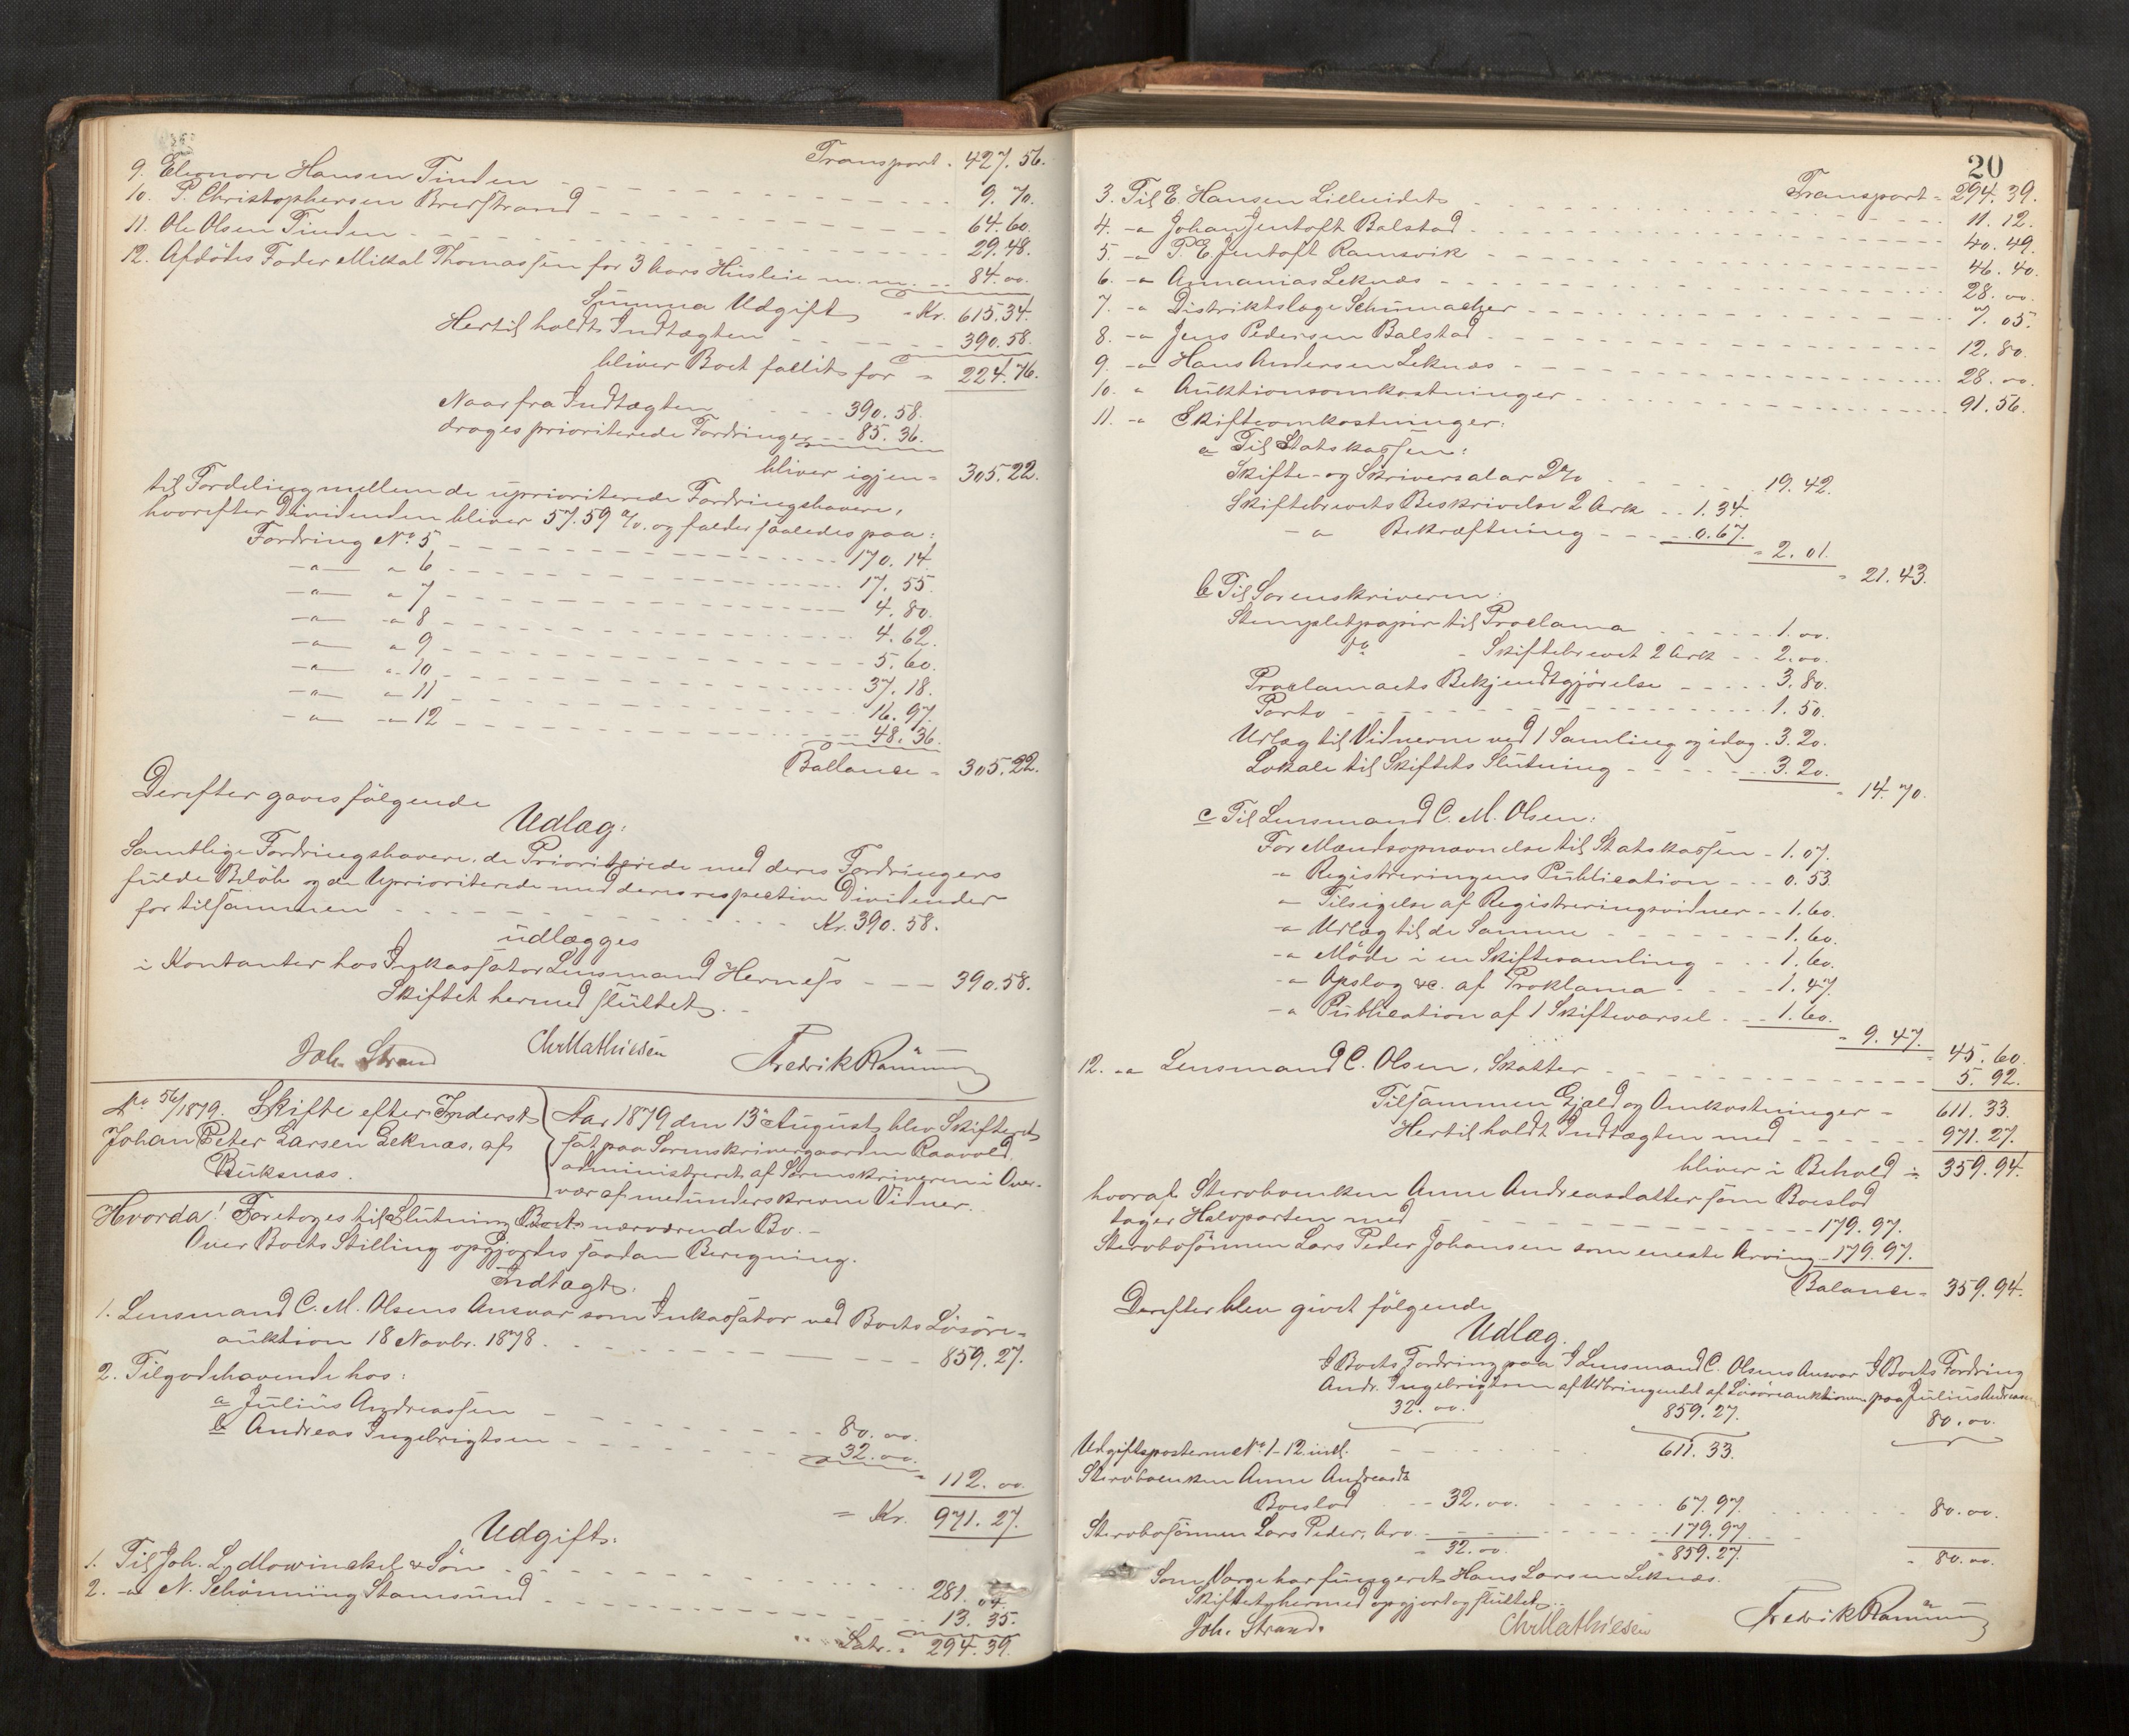 Transport - 427.56.
9. Elenore Hansen Tinden - - - 9.70.
10. P. Christophersen Brerstrand - - - 64.60.
11. Ole Olsen Tinden - - - 29.48.
12. Afdødes Fader Mikal Thomassen for 3 Aars Husleie m.m. - - 84.00.
Summa Udgift - Kr. 615.34.
Hertil holdt Indtægten - - - 390.58.
bliver Boet fallit for - 224.76.
Naar fra Indtægten - - - 390.58.
drages prioriterede Fordringer - - 85.36.
bliver igjen - 305.22.
til Fordeling mellem de uprioriterede Fordringshavere,
hvorefter Dividenden bliver 57.59 %. og falder saaledes paa:
Fordring No. 5 - - - 170.14.
-"- " 6 - - - 17.55.
-"- " 7 - - - 4.80.
-"- " 8 - - - 4.62.
-"- " 9 - - - 5.60.
-"- " 10 - - - 37.18.
-"- " 11 - - - 16.97.
-"- " 12 - - - 48.36.
Ballance - 305.22.
Derefter gaves følgende
Udlæg:
Samtlige Fordringshavere, de Prioriterede med deres Fordringers
fulde Beløb og de Uprioriterede med deres respective Dividender
for tilsammen - - - Kr. 390.58.
udlægges
i Kontanter hos Inkassator Lensmand Herness - - - 390.58.
Skiftet hermed sluttet.
Joh. Strand Chr Mathiesen Fredrik Ramm
No 56/1879. Skifte efter Inderst
Johan Peter Larsen Leknæs, af
Buksnæs.
Aar 1879 den 13de August blev Skifteret
sat paa Sorenskrivergaarden Raavold,
administreret af Sorenskriveren i Over-
vær af medunderskrevne Vidner.
Hvorda! Foretoges til Slutning Boets nærværende Bo. -
Over Boets Stilling opgjordes saadan Beregning.
Indtægt.
1. Lensmand C. M. Olsens Ansvar som Inkassator ved Boets Løsøre-
auktion 18 Novbr. 1878. - - - 859.27.
2. Tilgodehavende hos:
a Julius Andreassen - - - 80.00.
b Andreas Ingebrigtsen - - - 32.00.
- 112.00.
= Kr. 971.27.
Udgift:
1. Til Joh. L. Mowinckel & Søn - - - 281.04.
2. -" N. Schønning Stamsund - - - 13.35.
Latr. - 294.39.
20
Transport - 294.39.
3. Til E. Hansen Lilleeidet - - - 11.12.
4. -" Johan Jentoft Balstad - - - 40.49.
5. -" P. E. Jentoft Ramsvik - - - 46.40.
6. -" Annanias Leknæs - - - 28.00.
7. -" Distriktslæge Schumacher - - - 7.05.
8. -" Jens Pedersen Balstad - - - 12.80.
9. -" Hans Andersen Leknæs - - - 28.00.
10. " Auktionsomkostninger - - - 91.56.
11. -" Skifteomkostninger:
a Til Statskassen:
Skifte- og Skriversalar 2% - - - 19.42.
Skiftebrevets Beskrivelse 2 Ark - - 1.34.
-" Bekræftning - - - 0.67.
- 2.01.
- 21.43.
b Til Sorenskriveren:
Stempletpapir til Proclama - - - 1.00.
do - Skiftebrevet 2 Ark - - 2.00.
Proclamaets Bekjendtgjørelse - - - 3.80.
Porto - - - 1.50.
Udlæg til Vidnerne ved 1 Samling og idag - 3.20.
Lokale til Skiftets Slutning - - - 3.20.
- 14.70.
c Til Lensmand C. M. Olsen:
For Mændsopnævnelse til Statskassen - 1.07.
-" Registreringens Publication - - 0.53.
-" Tilsigelse af Registreringsvidner - - 1.60.
-" Udlæg til de Samme - - - 1.60.
-" Møde i en Skiftesamling - - - 1.60.
-" Opslag &c. af Proklama - - - 1.47.
-" Publication af 1 Skiftevarsel - - 1.60.
- 9.47.
- 45.60.
12. -" Lensmand C. Olsen, Skatter - - - 5.92.
Tilsammen Gjæld og Omkostninger - 611.33.
Hertil holdt Indtægten med - - - 971.27.
bliver i Behold - 359.94.
hvoraf Stervboenken Anne Andreasdatter som Boeslod
tager Halvparten med - - - 179.97.
Stervbosønnen Lars Peder Johansen som eneste Arving - 179.97.
Balance - 359.94.
Derefter blev givet følgende
Udlæg.
I Boets Fordring paa I Lensmand C. Olsens Ansvar I Boets Fordring
Andr. Ingebrigtsen af Udbringendet af Løsøreauktionen paa Julius Andreassen
32.00. 859.27. 80.00.
Udgiftsposterne No 1-12 incl. - - - 611.33.
Stervboenken Anne Andreasdr
Boeslod - - 32.00. - - - 67.97. - - - 80.00.
Stervbosønnen Lars Peder, Arv. - - - 179.97.
- 32.00. - 859.27. - 80.00.
Som Værge har fungeret Hans Larsen Leknæs.
Skiftet hermed opgjort og sluttet.
Joh. Strand. Chr Mathiesen Fredrik Ramm